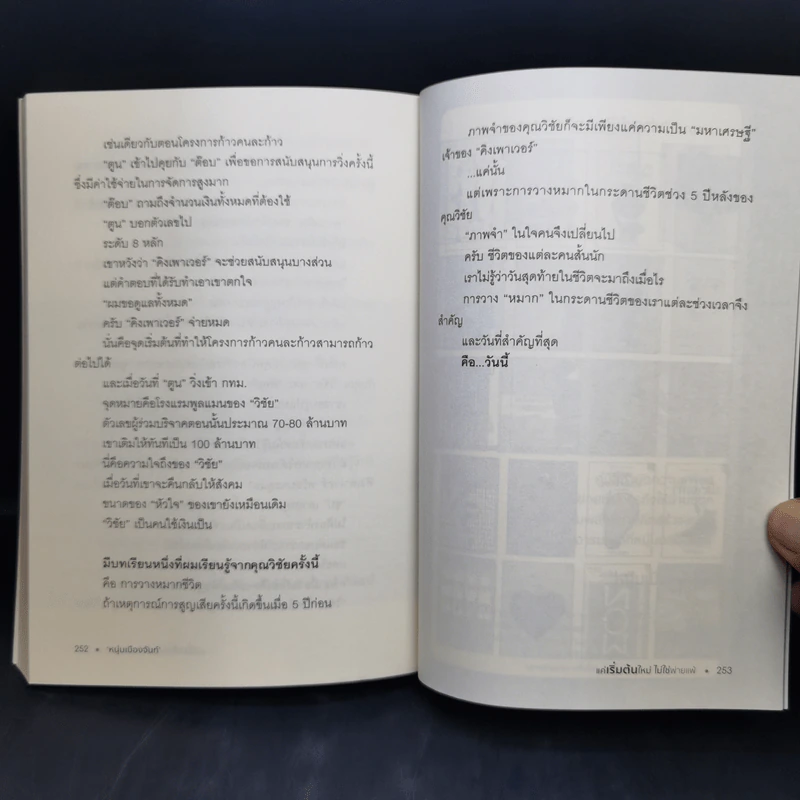 เช่นเดียวกับตอนโครงการก้าวคนละก้าว
"ตูน" เข้าไปคุยกับ "ต๊อบ" เพื่อขอการสนับสนุนการวิ่งครั้งนี้
ซึ่งมีค่าใช้จ่ายในการจัดการสูงมาก
"ต๊อบ" ถามถึงจำนวนเงินทั้งหมดที่ต้องใช้
"ตูน" บอกตัวเลขไป
ระดับ 8 หลัก
เขาหวังว่า "คิงเพาเวอร์" จะช่วยสนับสนุนบางส่วน
แต่คำตอบที่ได้รับทำเอาเขาตกใจ
"ผมขอดูแลทั้งหมด"
ครับ "คิงเพาเวอร์" จ่ายหมด
นั่นคือจุดเริ่มต้นที่ทำให้โครงการก้าวคนละก้าวสามารถก้าว
ต่อไปได้
และเมื่อวันที่ "ตูน" วิ่งเข้า กทม.
จุดหมายคือโรงแรมพูลแมนของ "วิชัย"
ตัวเลขผู้ร่วมบริจาคตอนนั้นประมาณ 70-80 ล้านบาท
เขาเติมให้ทันทีเป็น 100 ล้านบาท
นี่คือความใจถึงของ "วิชัย"
เมื่อวันที่เขาจะคืนกลับให้สังคม
ขนาดของ "หัวใจ" ของเขายังเหมือนเดิม
"วิชัย" เป็นคนใช้เงินเป็น
มีบทเรียนหนึ่งที่ผมเรียนรู้จากคุณวิชัยครั้งนี้
คือ การวางหมากชีวิต
ถ้าเหตุการณ์การสูญเสียครั้งนี้เกิดขึ้นเมื่อ 5 ปีก่อน
252 • 'หนุ่มเมืองจันท์'
ภาพจำของคุณวิชัยก็จะมีเพียงแค่ความเป็น "มหาเศรษฐี"
เจ้าของ "คิงเพาเวอร์"
...แค่นั้น
แต่เพราะการวางหมากในกระดานชีวิตช่วง 5 ปีหลังของ
คุณวิชัย
"ภาพจำ" ในใจคนจึงเปลี่ยนไป
ครับ ชีวิตของแต่ละคนสั้นนัก
เราไม่รู้ว่าวันสุดท้ายในชีวิตจะมาถึงเมื่อไร
การวาง "หมาก" ในกระดานชีวิตของเราแต่ละช่วงเวลาจึง
สำคัญ
และวันที่สำคัญที่สุด
คือ...วันนี้
แค่เริ่มต้นใหม่ ไม่ใช่พ่ายแพ้ • 253